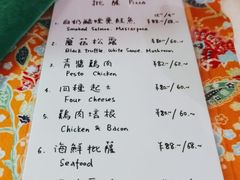 批薩 Pizza
12"/6"
1. 自奶鹹味燻鮭魚 $88-/60-
Smoked Salmon, Mascarpone
2. 蘑菇松露 $80-/60-
Black Truffle, White Sauce, Mushroom
3. 青醬鷄肉 $82-/62-
Pesto Chicken
4. 四種起士 $80-/60-
Four Cheeses
5. 鷄肉培根 $80-/60-
Chicken & Bacon
6. 海鮮批薩 $88-/68-
Seafood